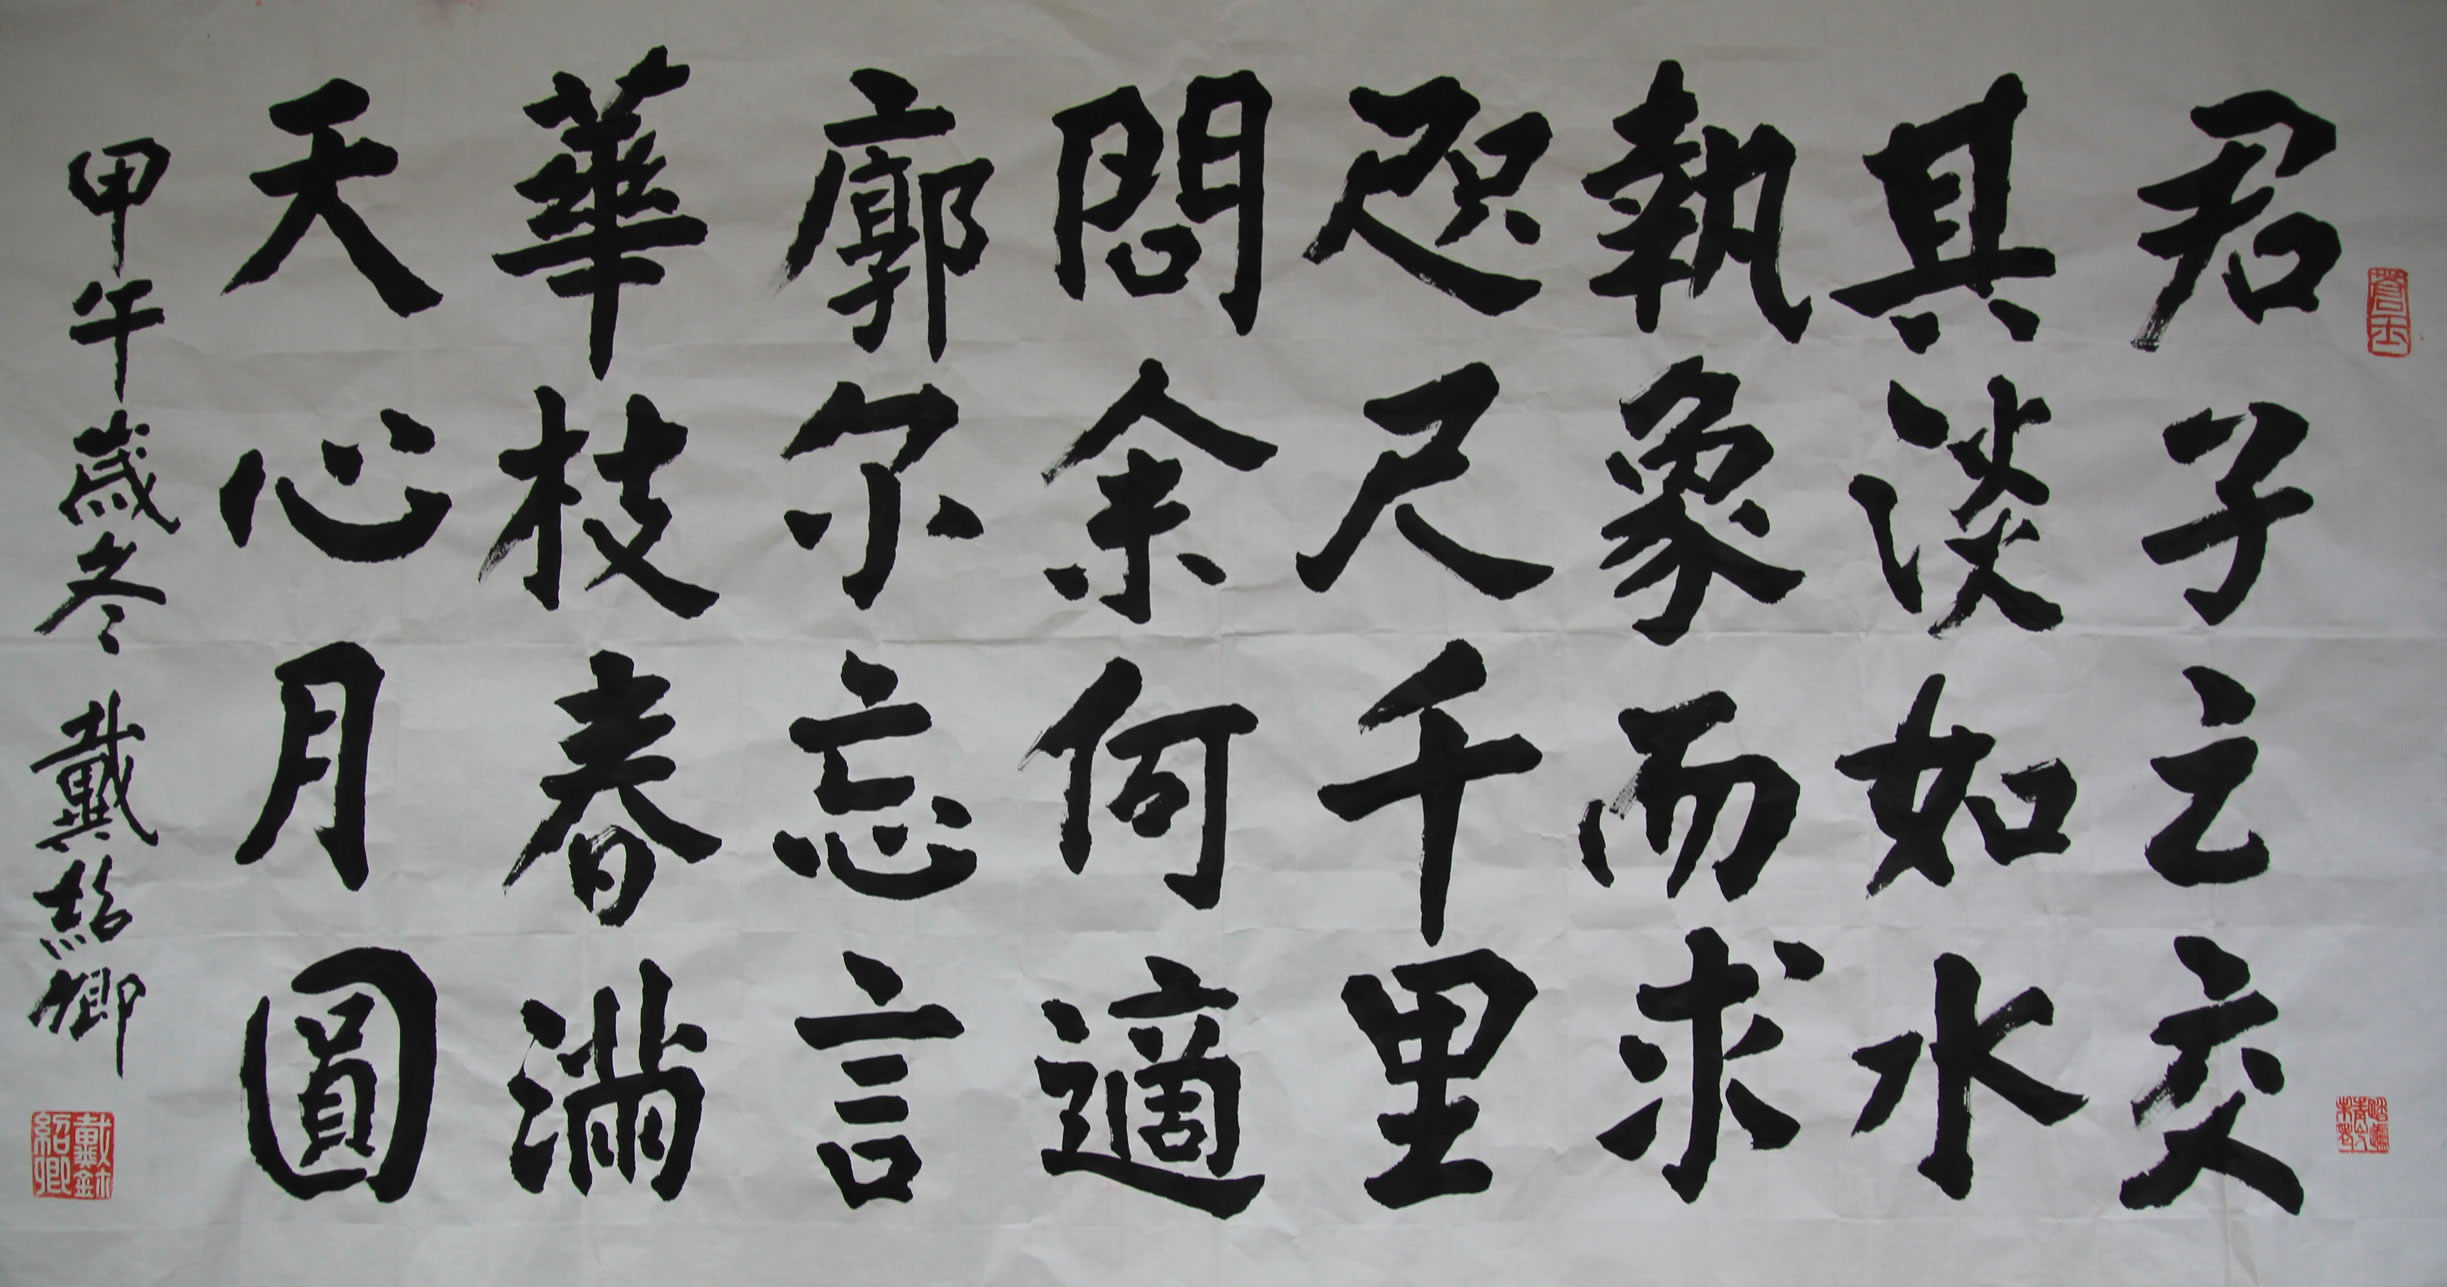 君子之交
其淡如水
執象而求
咫尺千里
問余何適
廓尔忘言
華枝春滿
天心月圓
甲午歲冬 戴紹卿
戴欽
紹卿